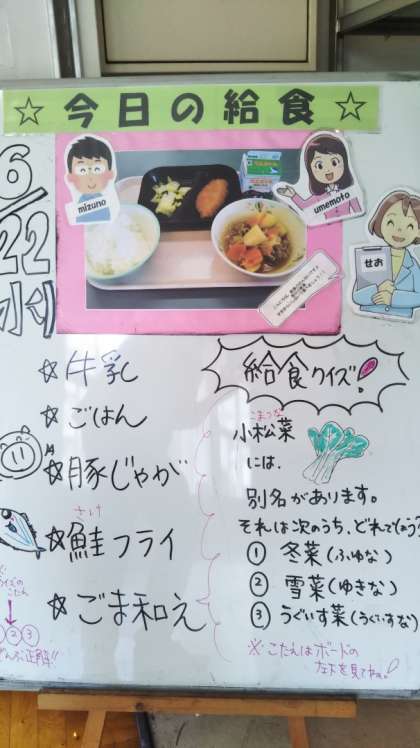 ☆今日の給食☆
6/22
水
mizuno
umemoto
せお
☆牛乳
☆ごはん
☆豚じゃが
さけ
☆鮭フライ
☆ごま和え
給食クイズ!
こまつな
小松菜
には、
別名があります。
それは次のうち、どれでしょう?
① 冬菜(ふゆな)
② 雪菜(ゆきな)
③ うぐいす菜(うぐいすな)
※こたえはボードの
左下を見てね。!
クイズの
こたえ
↓
①②③
ぜんぶ正解!!